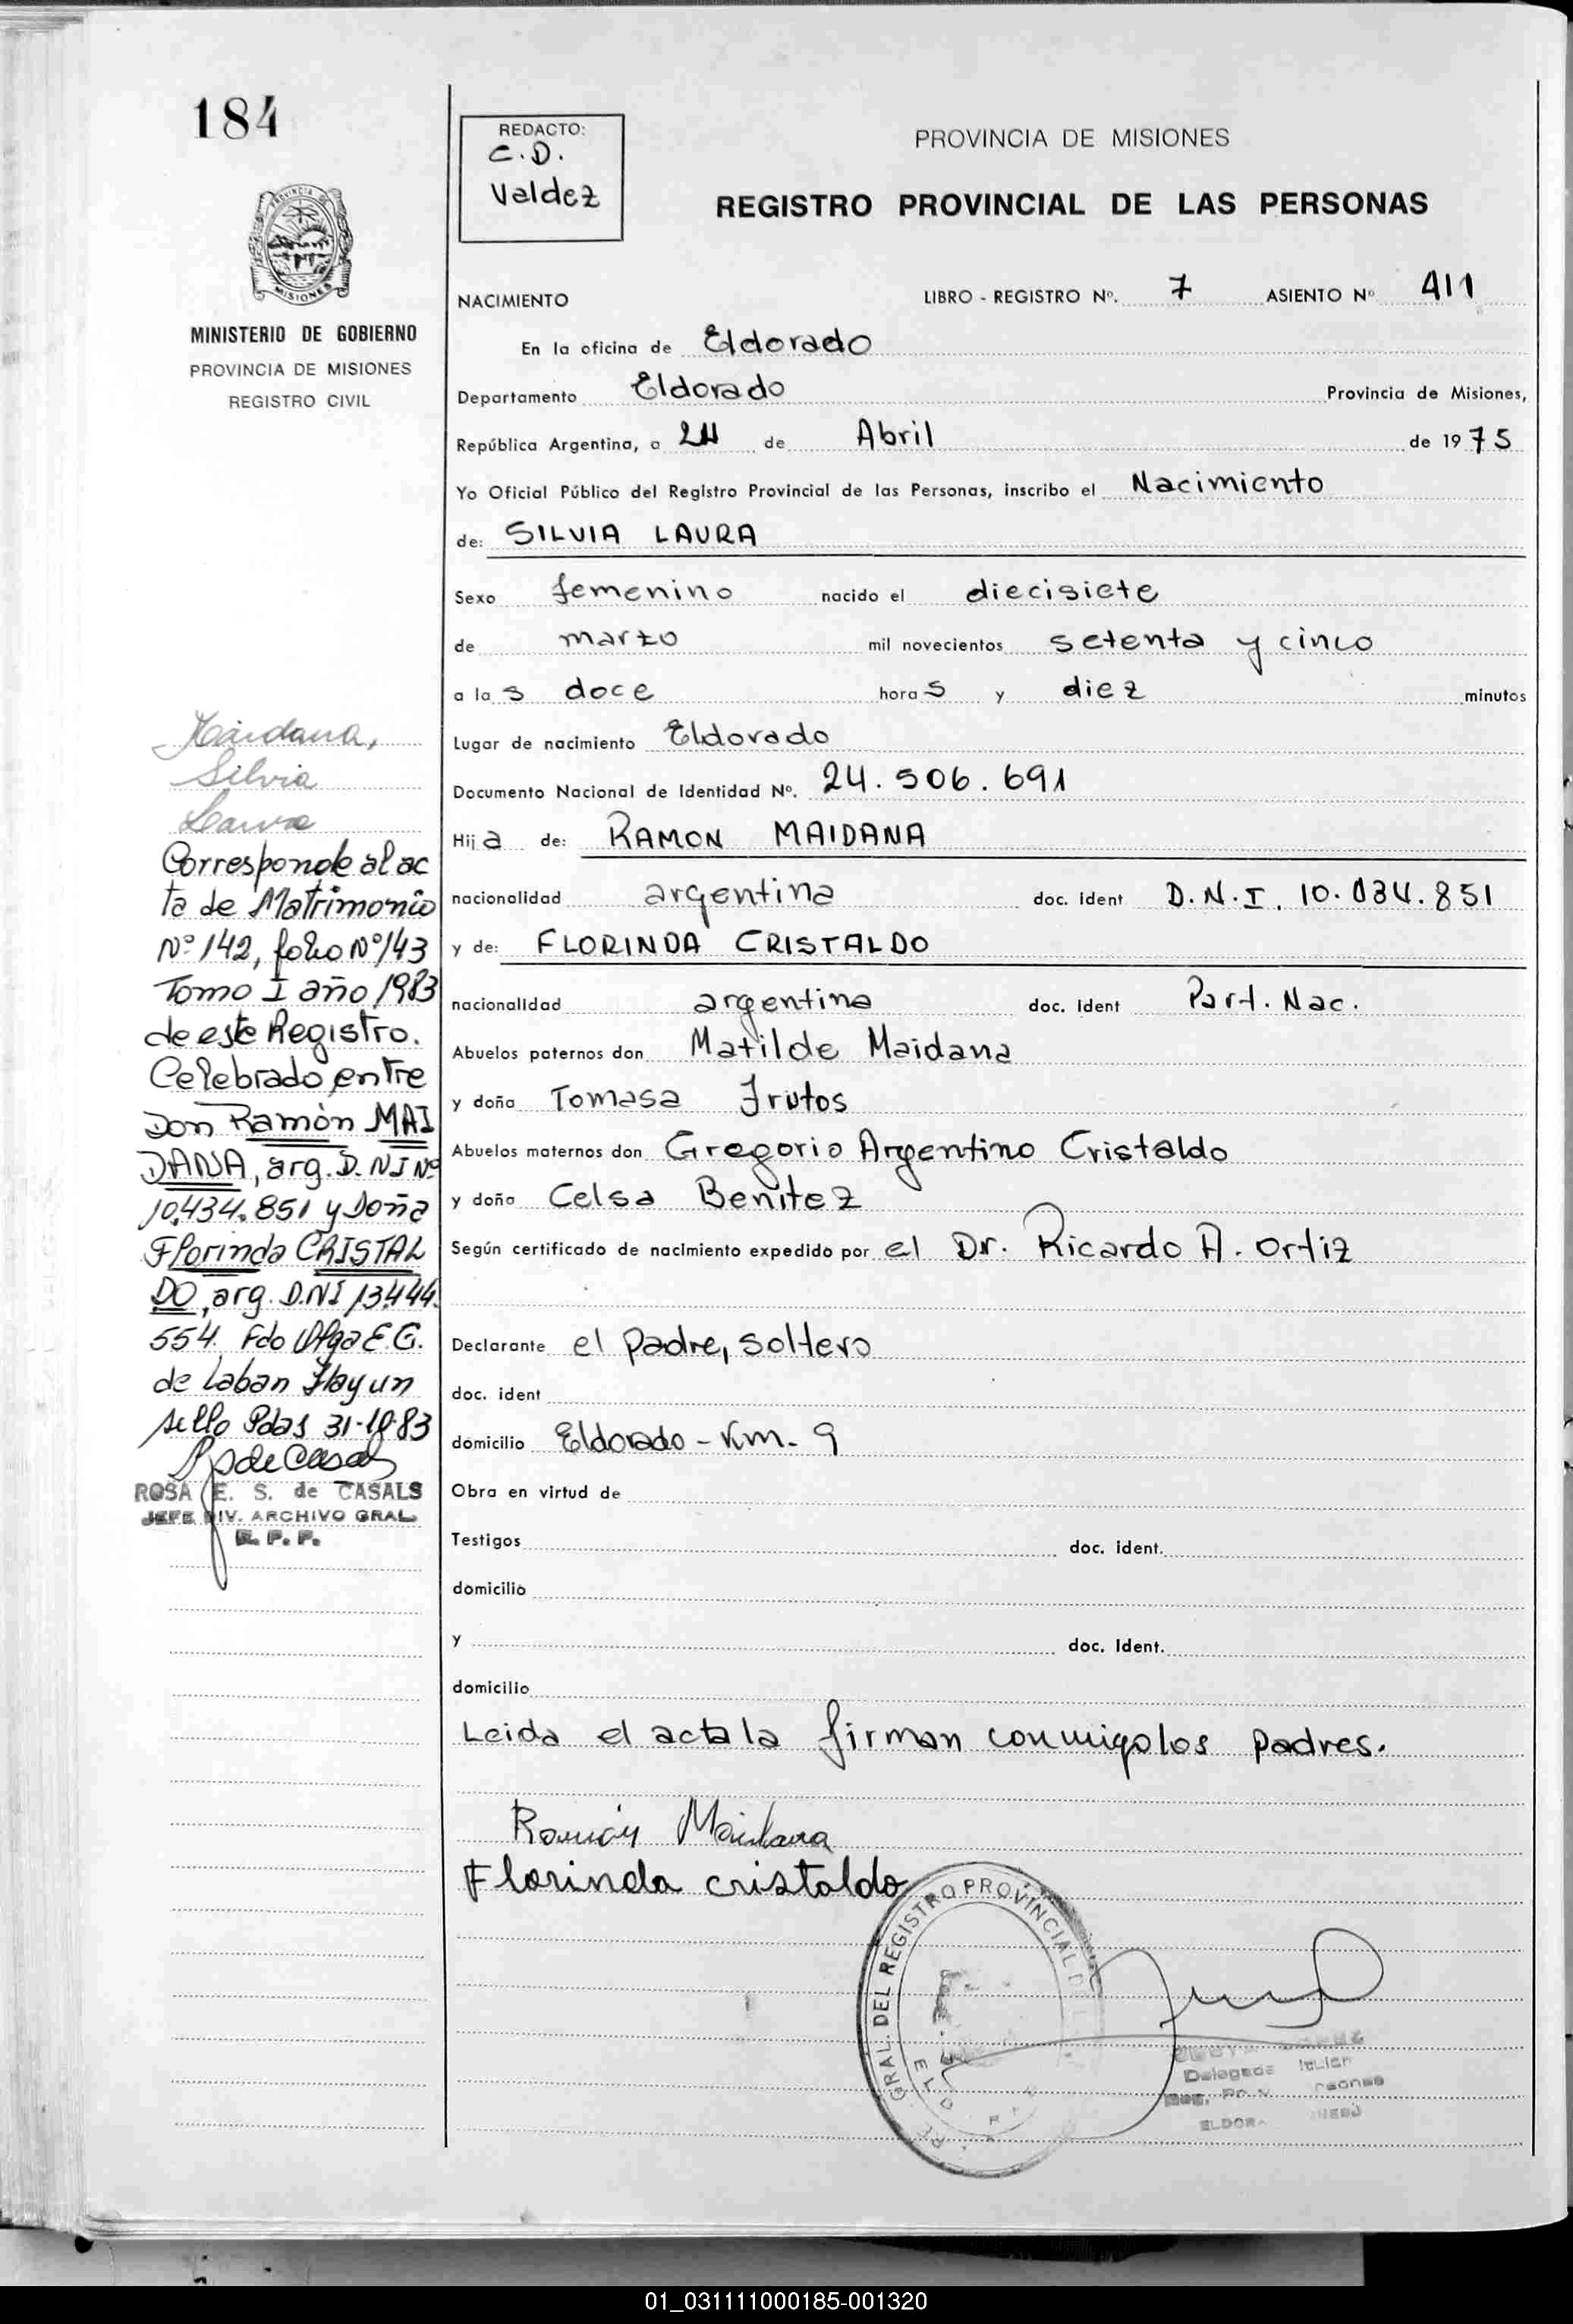 184
REDACTO:
C.D.
Valdez
PROVINCIA DE MISIONES
REGISTRO PROVINCIAL DE LAS PERSONAS
PROVINCIA
MISIONES
MINISTERIO DE GOBIERNO
PROVINCIA DE MISIONES
REGISTRO CIVIL
NACIMIENTO LIBRO - REGISTRO Nº. 7 ASIENTO Nº 411
En la oficina de Eldorado
Departamento Eldorado Provincia de Misiones,
República Argentina, a 24 de Abril de 1975
Yo Oficial Público del Registro Provincial de las Personas, inscribo el Nacimiento
de: SILVIA LAURA
Sexo femenino nacido el diecisiete
de marzo mil novecientos setenta y cinco
a las doce horas y diez minutos
Lugar de nacimiento Eldorado
Documento Nacional de Identidad Nº. 24.506.691
Hija de: RAMON MAIDANA
nacionalidad argentina doc. Ident D.N.I. 10.034.851
y de: FLORINDA CRISTALDO
nacionalidad argentina doc. Ident Part. Nac.
Abuelos paternos don Matilde Maidana
y doña Tomasa Frutos
Abuelos maternos don Gregorio Argentino Cristaldo
y doña Celsa Benitez
Según certificado de nacimiento expedido por el Dr. Ricardo A. Ortiz
Declarante el padre, soltero
doc. ident
domicilio Eldorado - Km. 9
Obra en virtud de
Testigos doc. ident.
domicilio
y doc. Ident.
domicilio
Leida el acta la firman conmigo los padres.
Ramón Maidana
Florinda cristaldo
Maidana,
Silvia
Laura
Corresponde al ac
ta de Matrimonio
Nº 142, folio Nº 143
Tomo I año 1983
de este Registro.
Celebrado entre
Don Ramón MAI
DANA, arg. D.NI Nº
10.434.851 y Doña
Florinda CRISTAL
DO, arg. D.NI 13.444.
554. Fdo Olga E.G.
de Laban
sello Pdas 31-10-83
ROSA E. S. de CASALS
JEFE DIV. ARCHIVO GRAL.
R. P. P.
GRAL. DEL REGISTRO PROVINCIAL DE
Delegada
01_031111000185-001320